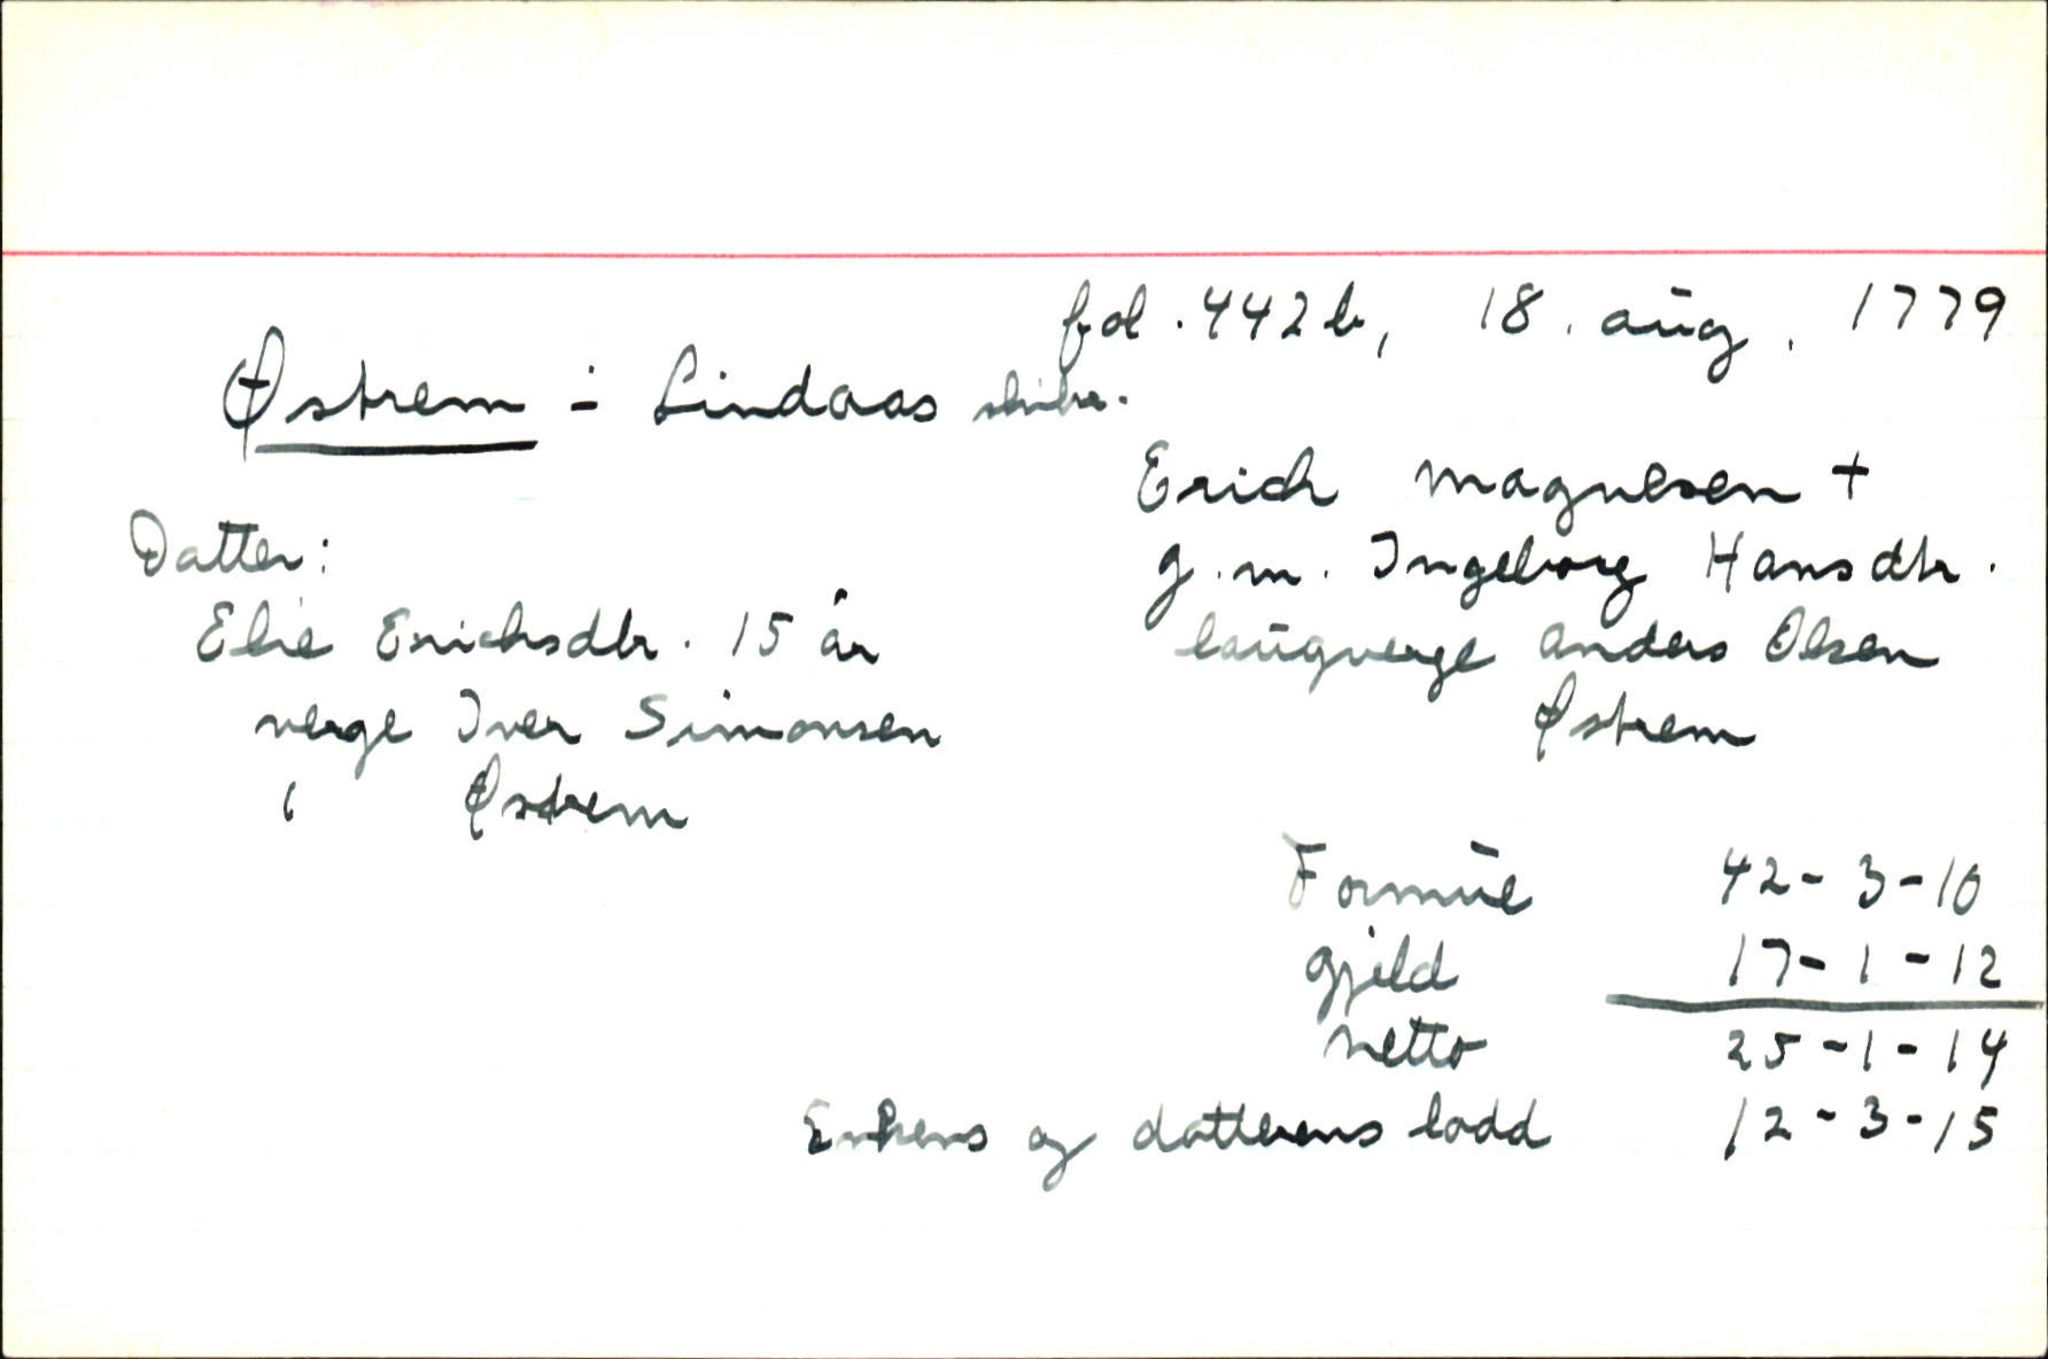 fol. 442 b, 18. aug. 1779
Østrem i Lindaas skibr.
Erich Magnesen +
g.m. Ingeborg Hansdtr.
laugverge Anders Olsen
Østrem
Datter:
Erichsdtr. 15 år
verge Iver Simonsen
Østrem
Formue 42-3-10
Gjeld 17-1-12
Netto 25-1-14
Enkens og datterens lodd 12-3-15